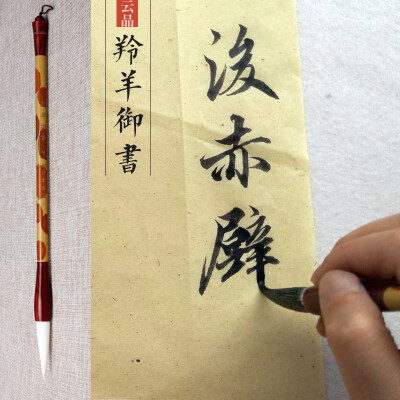 後赤壁
云品
羚羊御書